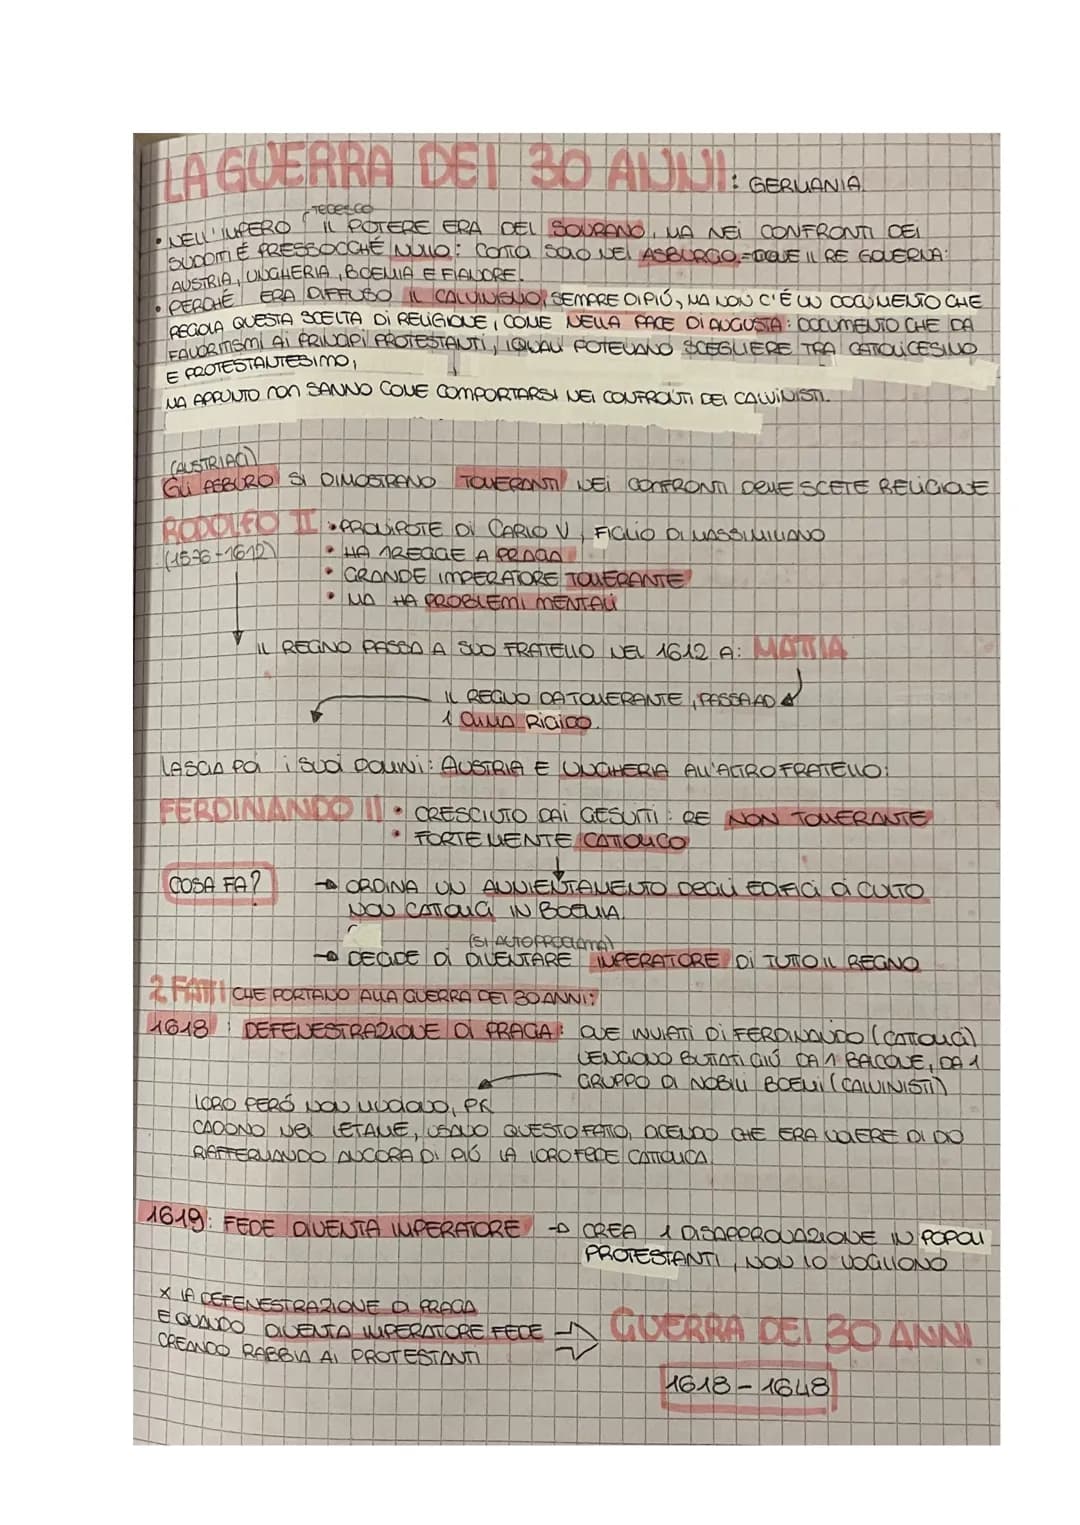 LA GUERRA DEI 30 ANNI: GERMANIA
TEDESCO
• NELL'IMPERO IL POTERE ERA DEL SOVRANO, MA NEI CONFRONTI DEI
SUDDITI É PRESSOCCHÉ NULLO: CONTA SOLO NEL ASBURGO = DOVE IL RE GOVERNA:
AUSTRIA, UNGHERIA, BOEMIA E FIANDRE.
• PERCHÉ ERA DIFFUSO IL CALVINISMO, SEMPRE DI PIÚ, MA NON C'É UN DOCUMENTO CHE
REGOLA QUESTA SCELTA DI RELIGIONE, COME NELLA PACE DI AUGUSTA: DOCUMENTO CHE DA
FAVORITISMI AI PRINCIPI PROTESTANTI, I QUALI POTEVANO SCEGLIERE TRA CATTOLICESIMO
E PROTESTANTESIMO,
MA APPUNTO NON SANNO COME COMPORTARSI NEI CONFRONTI DEI CALVINISTI.
(AUSTRIACI)
GLI ASBURO SI DIMOSTRANO TOLLERANTI NEI CONFRONTI DELLE SCELTE RELIGIOSE
RODOLFO II • PRONIPOTE DI CARLO V, FIGLIO DI MASSIMILIANO
(1576-1612) • HA 1 REGGE A PRAGA
• GRANDE IMPERATORE TOLLERANTE
• MA HA PROBLEMI MENTALI
IL REGNO PASSA A SUO FRATELLO NEL 1612 A: MATTIA
IL REGNO DA TOLLERANTE, PASSA AD
1 CLIMA RIGIDO.
LASCIA POI I SUOI DOMINI: AUSTRIA E UNGHERIA ALL'ALTRO FRATELLO:
FERDINANDO II • CRESCIUTO DAI GESUITI: RE NON TOLLERANTE
• FORTEMENTE CATTOLICO
COSA FA? → ORDINA UN ANNIENTAMENTO DEGLI EDIFICI DI CULTO
NON CATTOLICI IN BOEMIA.
(SI AUTOPROCLAMA)
→ DECIDE DI DIVENTARE IMPERATORE DI TUTTO IL REGNO
2 FATTI CHE PORTANO ALLA GUERRA DEI 30 ANNI:
1618: DEFENESTRAZIONE DI PRAGA: DUE INVIATI DI FERDINANDO (CATTOLICI)
VENGONO BUTTATI GIÚ DA 1 BALCONE, DA 1
GRUPPO DI NOBILI BOEMI (CALVINISTI)
LORO PERÓ NON MUOIONO, PK
CADONO NEL LETAME, USANO QUESTO FATTO, DICENDO CHE ERA VOLERE DI DIO
RIAFFERMANDO ANCORA DI PIÚ LA LORO FEDE CATTOLICA.
1619: FEDE DIVENTA IMPERATORE → CREA 1 DISAPPROVAZIONE IN POPOLI
PROTESTANTI, NON LO VOGLIONO
X LA DEFENESTRAZIONE DI PRAGA
E QUANDO DIVENTA IMPERATORE FEDE ⇒ GUERRA DEI 30 ANNI
CREANDO RABBIA AI PROTESTANTI
1618-1648